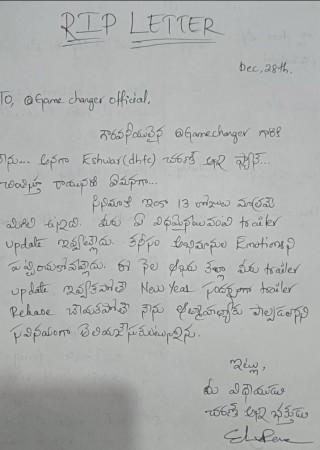 RIP LETTER
Dec, 28th.
TO, @Game changer official,
గౌరవనీయులైన @Gamechanger
నేను... అనగా Eshwar(dhfc) చరణ్ అన్న ఫ్యాన్...
వ్రాయునది ఏమనగా...
సినిమాకి ఇంకా 13 రోజులు మాత్రమే
మిగిలి ఉన్నది. మీరు ఏ విధమైనటువంటి trailer
update ఇవ్వట్లేదు. కనీసం అభిమానుల Emotionsని
పట్టించుకోవట్లేదు. ఈ నెల ఆఖరు కల్లా మీరు trailer
update ఇవ్వకపోతే New Year సందర్భంగా trailer
Release చేయకపోతే నేను ఆత్మహత్యకు పాల్పడతానని
సవినయంగా తెలియజేసుకుంటున్నాను.
ఇట్లు,
మీ విధేయుడు
చరణ్ అన్న భక్తుడు